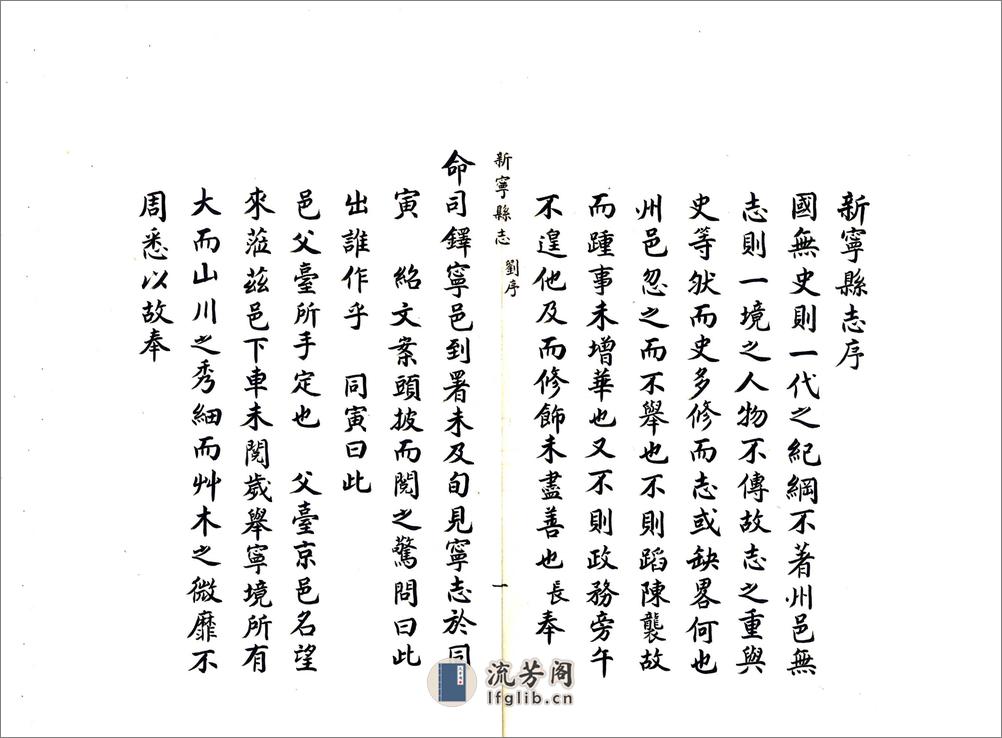 新寧縣志序
國無史則一代之紀綱不著州邑無
志則一境之人物不傳故志之重與
史等然而史多修而志或缺畧何也
州邑忽之而不舉也不則蹈陳襲故
而踵事未增華也又不則政務旁午
不遑他及而修飾未盡善也長奉
新寧縣志 劉序 一
命司鐸寧邑到署未及旬見寧志於同
寅 紹文案頭披而閱之驚問曰此
出誰作乎 同寅曰此
邑父臺所手定也 父臺京邑名望
來蒞茲邑下車未閱歲舉寧境所有
大而山川之秀細而艸木之微靡不
周悉以故奉
流芳阁
lfglib.cn